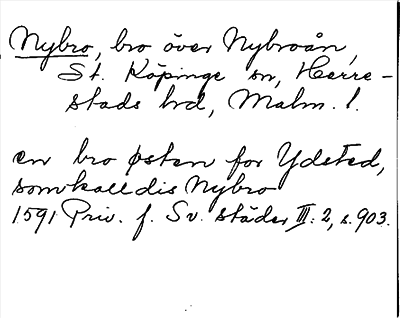 Nybro, bro över Nybroån,
St. Köpinge sn, Herre-
stads hd, Malm. l.
en bro østen for Ydsted,
som kalldis Nybro
1591 Priv. f. Sv. städer III: 2, s. 903.